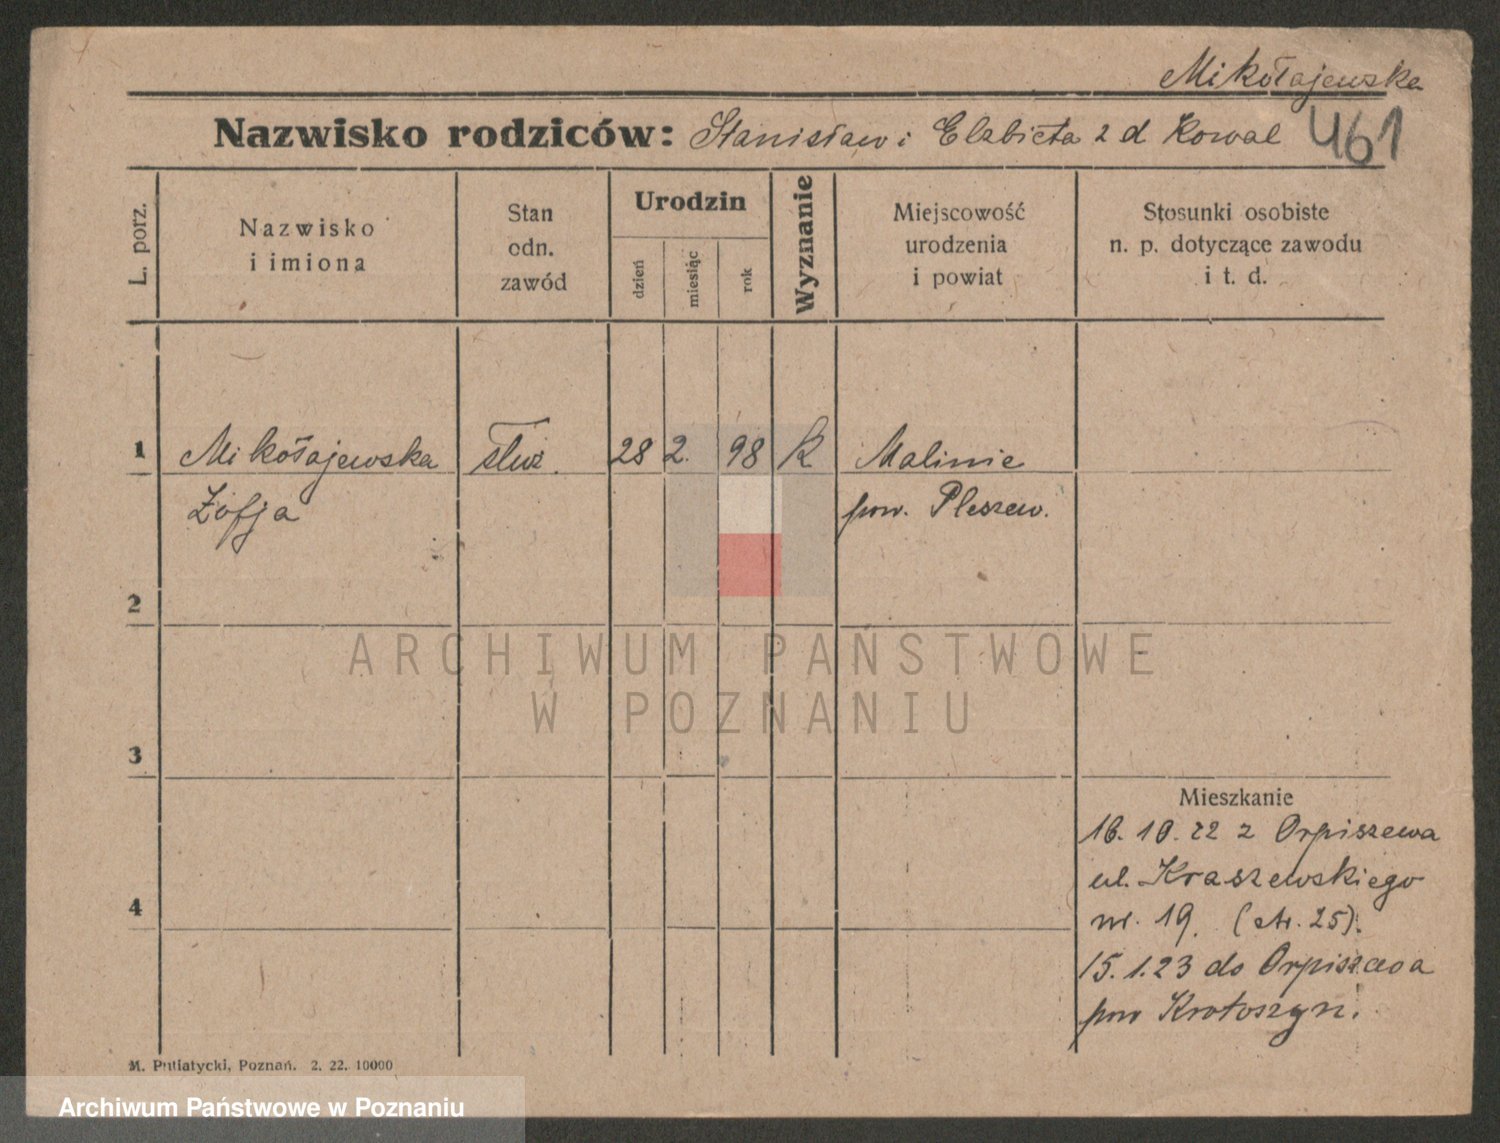 Mikołajewska
Nazwisko rodziców: Stanisław i Elżbieta z d Kowal
461
L. porz.
Nazwisko
i imiona
Stan
odn.
zawód
Urodzin
dzień
miesiąc
rok
Wyznanie
Miejscowość
urodzenia
i powiat
Stosunki osobiste
n. p. dotyczące zawodu
i t. d.
1 Mikołajewska służ. 28 2. 98 K Malinie
Zofja pow. Pleszew.
2
3
4
Mieszkanie
16. 10. 22 z Orpiszewa
ul. Kraszewskiego
nr. 19. (str. 25).
15. 1. 23 do Orpiszewa
pow Krotoszyn.
M. Putiatycki, Poznań. 2. 22. 10000
ARCHIWUM PAŃSTWOWE
W POZNANIU
Archiwum Państwowe w Poznaniu